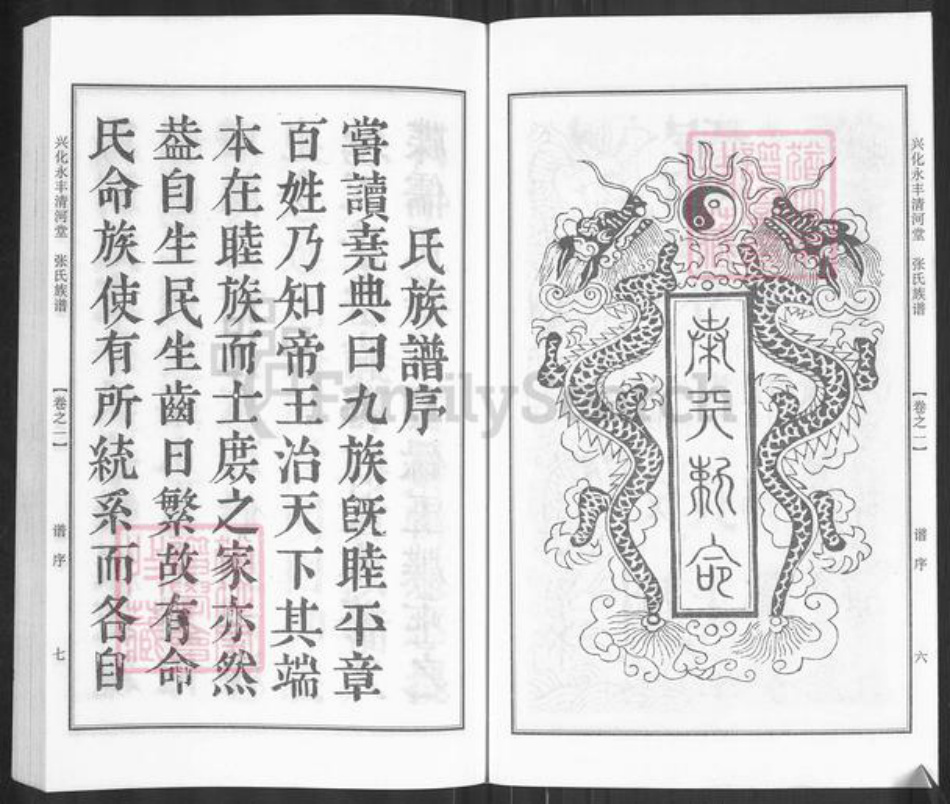 兴化永丰清河堂 张氏族谱
【卷之一】
谱序
六
奉天敕命
氏族譜序
嘗讀堯典曰九族既睦平章
百姓乃知帝王治天下其端
本在睦族而士庶之家亦然
葢自生民生齒日繁故有命
氏命族使有所統系而各自
兴化永丰清河堂 张氏族谱
【卷之一】
谱序
七
FamilySearch